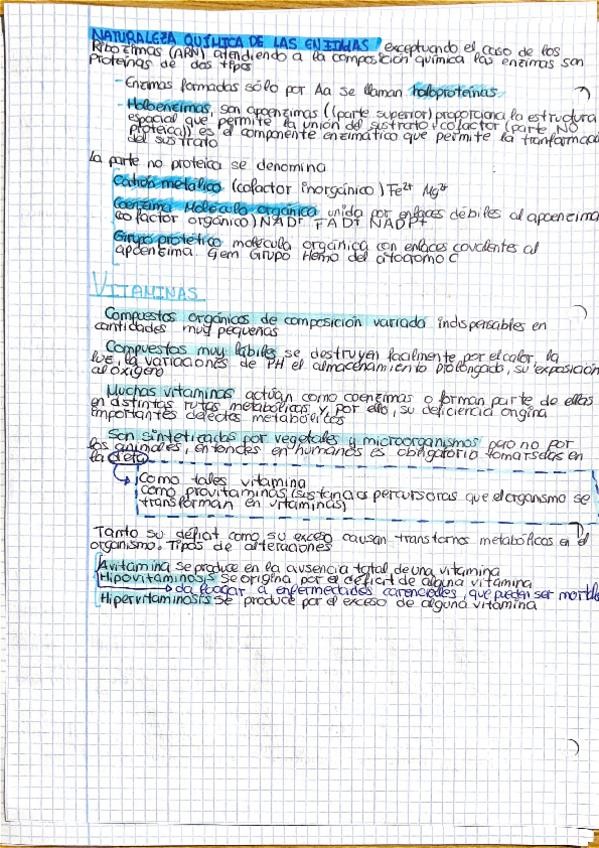 NATURALEZA QUÍMICA DE LAS ENZIMAS, exceptuando el caso de los
Ribozimas (ARN) atendiendo a la composición química las enzimas son
Proteínas de dos tipos
- Enzimas formadas sólo por Aa se llaman holoproteínas
- Holoenzimas, son apoenzimas ((parte superior) proporciona la estructura
espacial que permite la unión del sustrato y cofactor (parte NO
proteica)) es el componente enzimático que permite la tranformació
del sustrato
la parte no proteica se denomina
Catión metálico (cofactor inorgánico) Fe²⁺ Mg²⁺
Coenzima Molécula orgánica unida por enlaces débiles al apoenzima
(cofactor orgánico) NAD⁺ FAD⁺ NADP⁺
Grupo protético molécula orgánica con enlaces covalentes al
apoenzima. Ejem Grupo Hemo del citocromo C
VITAMINAS
Compuestos orgánicos de composición variada indispensables en
cantidades muy pequeñas
Compuestos muy lábiles se destruyen facilmente por el calor, la
luz, la variaciones de PH el almacenamiento prolongado, su exposición
al oxígeno
Muchas vitaminas actúan como coenzimas o forman parte de ellas
en distintas rutas metabólicas y, por ello, su deficiencia origina
importantes defectos metabólicos
Son sintetizadas por vegetales y microorganismos pero no por
los animales, entondes en humanos es obligatorio tomarselas en
la dieta
Como tales vitamina
como provitaminas (sustancias percursoras que el organismo se
transforman en vitaminas)
Tanto su déficit como su exceso causan transtornos metabólicos en el
organismo. Tipos de alteraciones
Avitamina se produce en la ausencia total de una vitamina
Hipovitaminosis se origina por el déficit de alguna vitamina
da lugar a enfermedades carenciales, que pueden ser mortale
Hipervitaminosis se produce por el exceso de alguna vitamina